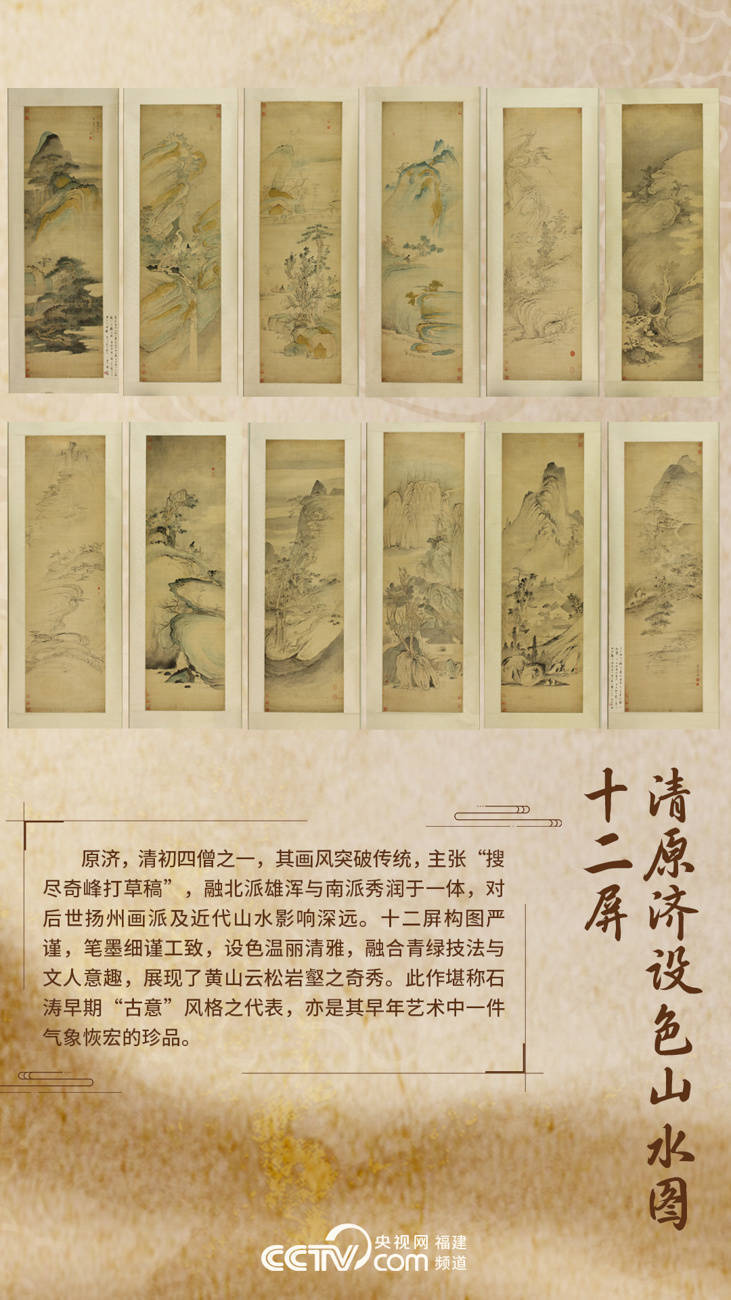 清原济设色山水图
十二屏
原济，清初四僧之一，其画风突破传统，主张“搜
尽奇峰打草稿”，融北派雄浑与南派秀润于一体，对
后世扬州画派及近代山水影响深远。十二屏构图严
谨，笔墨细谨工致，设色温丽清雅，融合青绿技法与
文人意趣，展现了黄山云松岩壑之奇秀。此作堪称石
涛早期“古意”风格之代表，亦是其早年艺术中一件
气象恢宏的珍品。
CCTV.com 央视网 福建
频道